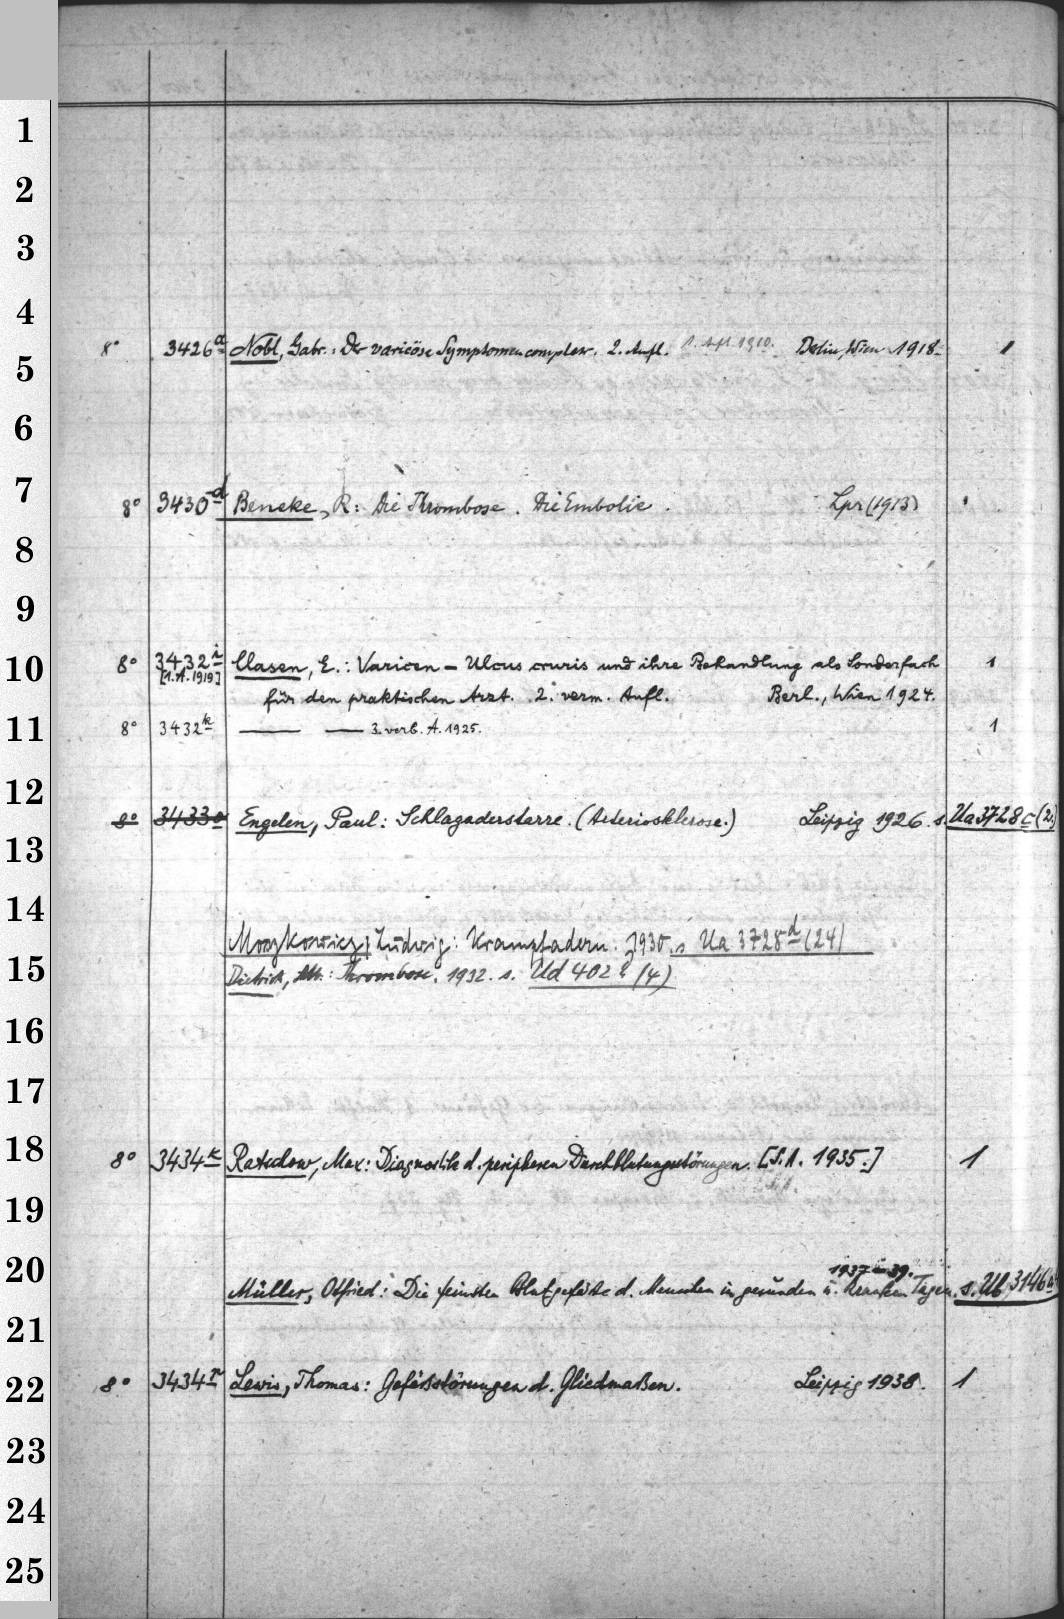 1
2
3
4
8° 3426a Nobl, Gabr.: Der varicöse Symptomencomplex. 2. Aufl. 1. Afl. 1910. Berlin, Wien 1918. 1
5
6
7
8° 3430d Beneke, R: Die Thrombose. Die Embolie. Lpz (1913) 1
8
9
10
8° 3432i Clasen, E.: Varicen – Ulcus cruris und ihre Behandlung als Sonderfach 1
[1. A. 1919] für den praktischen Arzt. 2. verm. Aufl. Berl., Wien 1924.
11
8° 3432k —— —— 3. verb. A. 1925. 1
12
8° 3433a Engelen, Paul: Schlagaderstarre. (Arteriosklerose.) Leipzig 1926. s. Ua 3728c (2)
13
14
Moszkowicz, Ludwig: Krampfadern. 1930. s. Ua 3728d (24)
15
Dietrich, : Thrombose. 1932. s. Ud 402 (4)
16
17
18
8° 3434k Ratschow, Max: Diagnostik d. peripheren Durchblutungsstörungen. [S.A. 1935.] 1
19
20
1937–39.
Müller, Otfried: Die feinsten Blutgefäße d. Menschen in gesunden u. kranken Tagen. s. Ub 3146
21
22
8° 3434n Lewis, Thomas: Gefäßstörungen d. Gliedmaßen. Leipzig 1938. 1
23
24
25